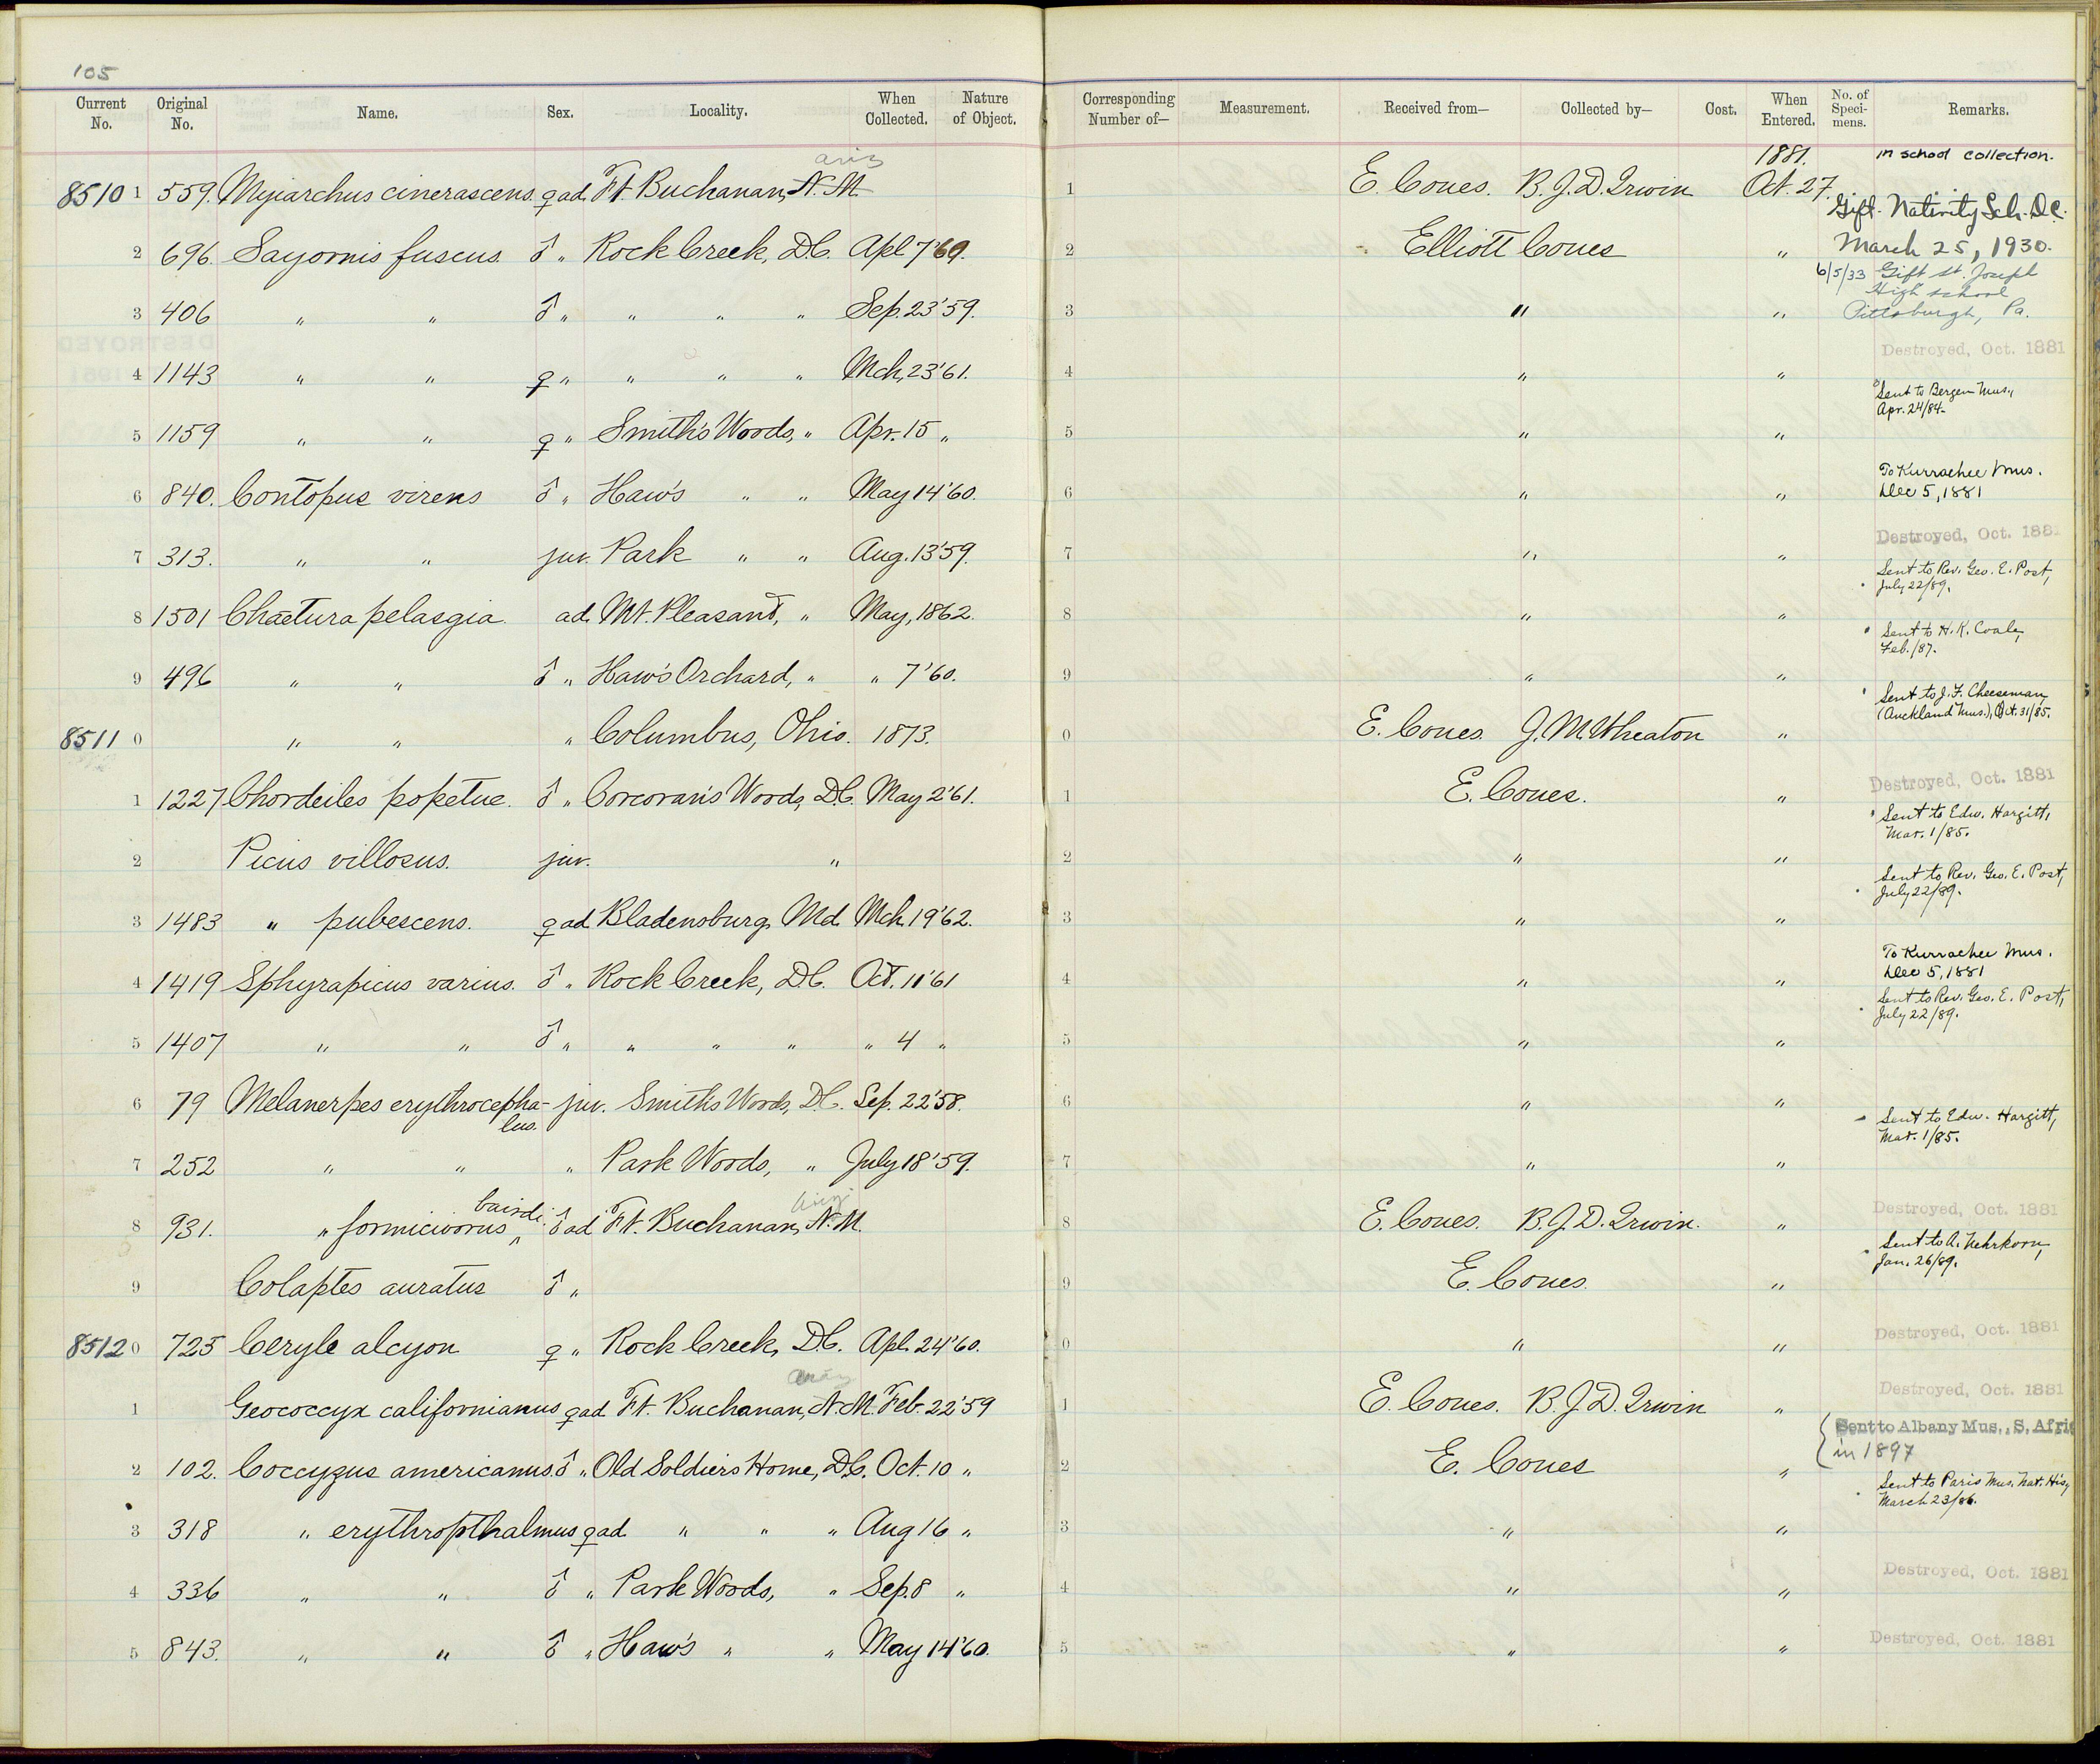 105
Current No. Original No. Name. Sex. Locality. When Collected. Nature of Object. Corresponding Number of— Measurement. Received from— Collected by— Cost. When Entered. No. of Speci-mens. Remarks.
ariz 1881. in school collection.
8510 1 559. Myiarchus cinerascens. ♀ ad. Ft. Buchanan, N.M. 1 E. Coues. B.J.D. Irwin Oct. 27. Gift. Nativity Sch. D.C.
2 696. Sayornis fuscus. ♂ " Rock Creek, D.C. Apl 7 '60. 2 Elliott Coues " March 25, 1930.
6/5/33 Gift St. Joseph
High school
3 406 " " ♂ " " " " Sep. 23 '59. 3 " " Pittsburgh, Pa.
Destroyed, Oct. 1881
4 1143 " " ♀ " " " " Mch, 23 '61. 4 " "
Sent to Bergen Mus.,
Apr. 24/84.
5 1159 " " ♀ " Smith's Woods, " Apr. 15 " 5 " "
To Kurrachee Mus.
6 840. Contopus virens ♂ " Haw's " " May 14 '60. 6 " " Dec 5, 1881
Destroyed, Oct. 188
7 313. " " juv. Park " " Aug. 13 '59. 7 " "
Sent to Rev. Geo. E. Post,
July 22/89.
8 1501 Chaetura pelasgia. ad. Mt. Pleasant, " May, 1862. 8 " "
Sent to H. K. Coale,
Feb./87.
9 496 " " ♂ " Haw's Orchard, " " 7 '60. 9 " "
Sent to J. F. Cheeseman,
(Auckland Mus.), Oct. 31/85.
8511 0 " " " Columbus, Ohio. 1873. 0 E. Coues. J. M. Wheaton "
Destroyed, Oct. 1881
1 1227 Chordeiles popetue. ♂ " Corcoran's Woods, D.C. May 2 '61. 1 E. Coues. "
Sent to Edw. Hargitt,
Mar. 1/85.
2 Picus villosus. juv. " 2 " "
Sent to Rev. Geo. E. Post,
July 22/89.
3 1483 " pubescens. ♀ ad Bladensburg, Md. Mch. 19 '62. 3 " "
To Kurrachee Mus.
4 1419 Sphyrapicus varius. ♂ " Rock Creek, D.C. Oct. 11 '61 4 " " Dec 5, 1881
Sent to Rev. Geo. E. Post,
July 22/89.
5 1407 " " ♂ " " " " " 4 " 5 " "
6 79 Melanerpes erythrocepha- juv. Smith's Woods, D.C. Sep. 22 '58. 6 " "
lus.
Sent to Edw. Hargitt,
Mar. 1/85.
7 252 " " " Park Woods, " July 18 '59. 7 " "
bairdi. Destroyed, Oct. 1881
8 931. " formicivorus ♂ ad Ft. Buchanan, N.M. 8 E. Coues. B.J.D. Irwin. "
Sent to A. Nehrkorn,
Jan. 26/89.
9 Colaptes auratus ♂ " 9 E. Coues. "
8512 0 725 Ceryle alcyon ♀ " Rock Creek, D.C. Apl. 24 '60. 0 " " Destroyed, Oct. 1881
Destroyed, Oct. 1881
1 Geococcyx californianus ♀ ad Ft. Buchanan, N.M. Feb. 22 '59 1 E. Coues. B.J.D. Irwin "
Sent to Albany Mus., S. Afri
in 1897
2 102. Coccyzus americanus. ♂ " Old Soldiers Home, D.C. Oct. 10 " 2 E. Coues "
Sent to Paris Mus. Nat. His,
March 23/86.
3 318 " erythropthalmus ♀ ad. " " " Aug 16 " 3 " "
4 336 " " ♂ " Park Woods, " Sep. 8 " 4 " " Destroyed, Oct. 1881
5 843. " " ♂ " Haw's " " May 14 '60. 5 " " Destroyed, Oct. 1881